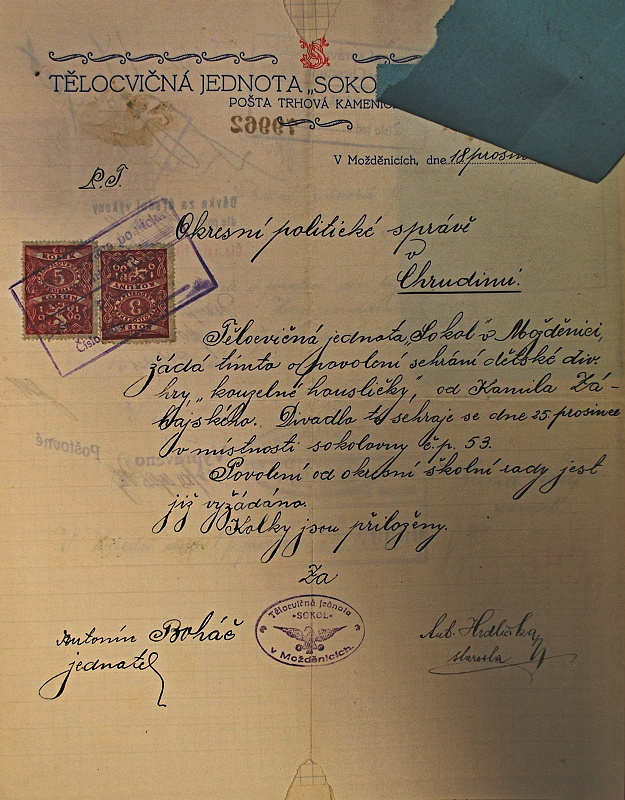 TĚLOCVIČNÁ JEDNOTA „SOKO
POŠTA TRHOVÁ KAMENIC
19962
V Možděnicích, dne 18 prosin
P. T.
Okresní politické správě
v
Chrudimi.
5
8
Číslo
Tělocvičná jednota „Sokol" v Možděnici,
žádá tímto o povolení sehrání dětské div.
hry, „kouzelné housličky", od Kamila Zá-
bajského. Divadlo to sehraje se dne 25. prosince
v místnosti sokolovny č.p. 53.
Povolení od okresní školní rady jest
již vyžádáno.
Kolky jsou přiloženy.
Za
Tělocvičná jednota
•SOKOL•
v Možděnicích.
Antonín Boháč
jednatel
Ant. Hrdlička
starosta
Poštovné